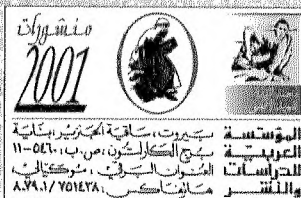 منشورات
2001
المؤسسة
العربية
للدراسات
والنشر
بيروت، ساقية الجنزير، بناية
برج الكارلتون، ص.ب: ٥٤٦٠-١١
العنوان البرقي: موكيالي
هاتفاكس: ٨٠٧٩٠١/٧٥١٤٣٨